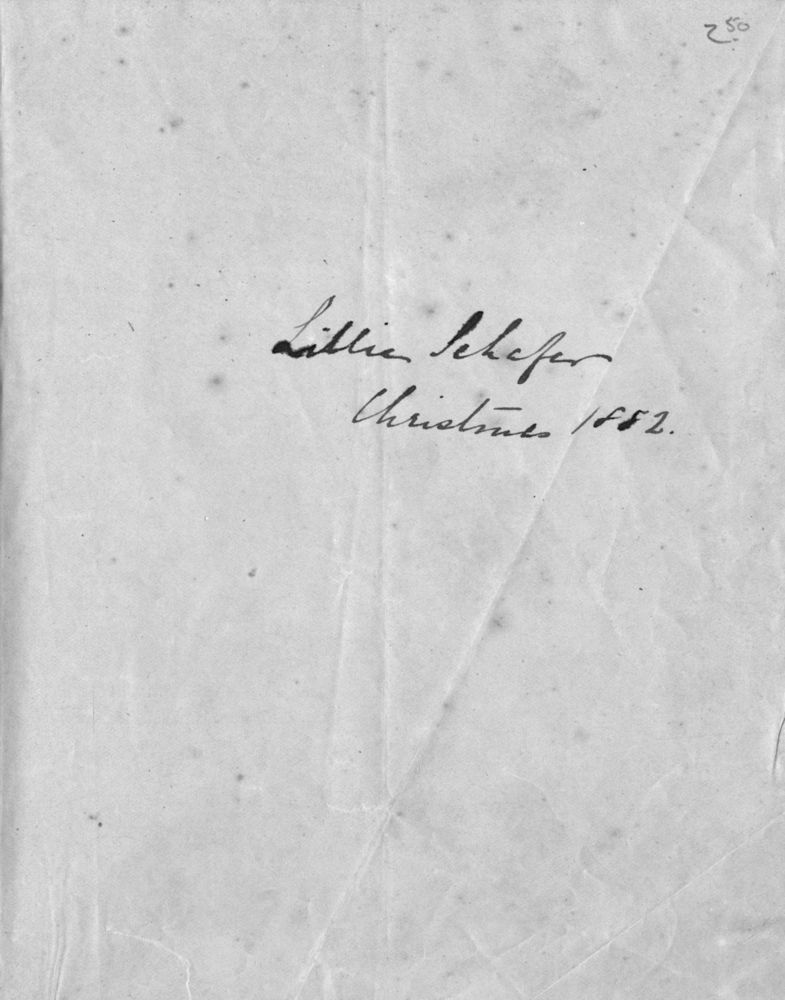 2.50
Lillie Schafer
Christmas 1882.